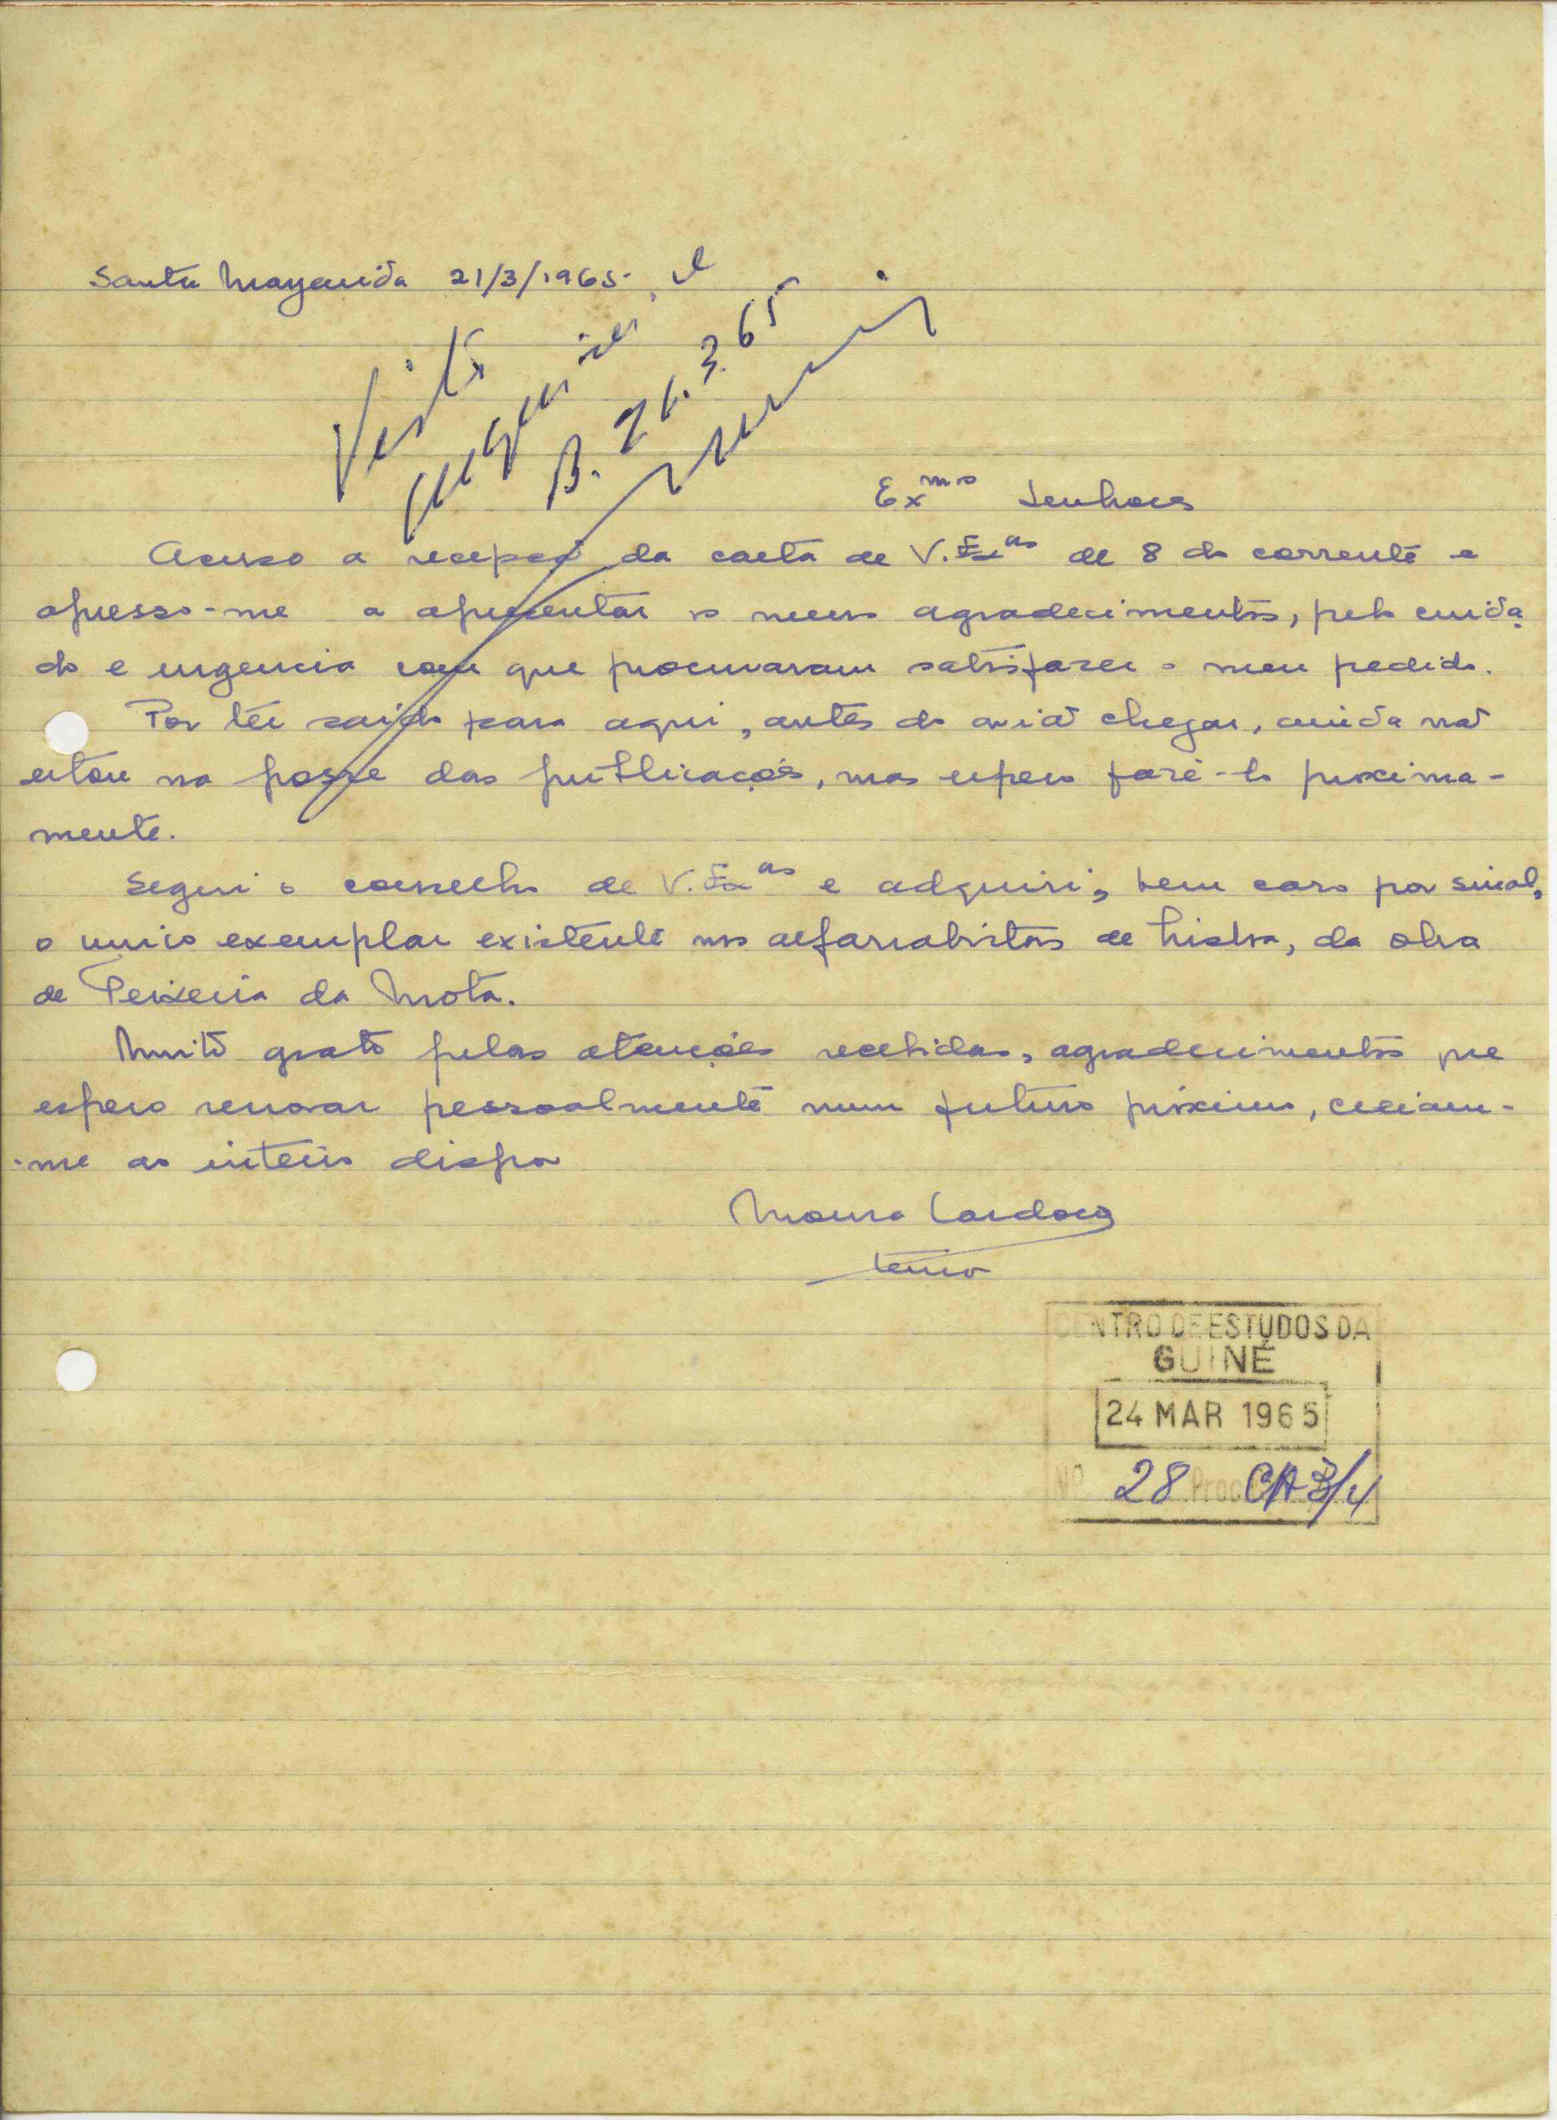 Santa Margarida 21/3/1965.
Visto
arquive-se
B. 26.3.65
Exmos Senhores
Acuso a recepção da carta de V. Exas de 8 do corrente e
apresso-me a apresentar os meus agradecimentos, pelo cuida
do e urgencia com que procuraram satisfazer o meu pedido.
Por ter saido para aqui, antes do avião chegar, ainda não
estou na posse das publicações, mas espero fazê-lo proxima-
mente.
Segui o conselho de V. Exas e adquiri, bem caro por sinal,
o unico exemplar existente nos alfarrabistas de Lisboa, da obra
de Teixeira da Mota.
Muito grato pelas atenções recebidas, agradecimentos que
espero renovar pessoalmente num futuro próximo, creiam-
-me ao inteiro dispor
Moura Cardoso
CENTRO DE ESTUDOS DA
GUINÉ
24 MAR 1965
Nº 28 Proc CA 3/4